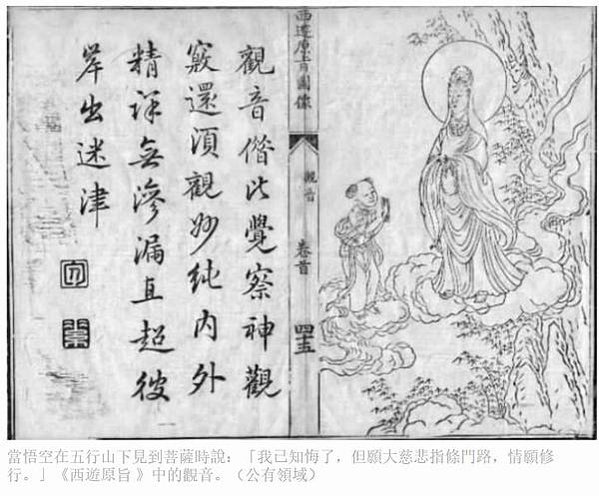 西遊原旨圖像
觀音
卷首
四十五
觀音此覺察神觀
竅還湏觀妙純內外
精詳無滲漏直超彼
岸出迷津
當悟空在五行山下見到菩薩時說：「我已知悔了，但願大慈悲指條門路，情願修
行。」《西遊原旨 》中的觀音。（公有領域）